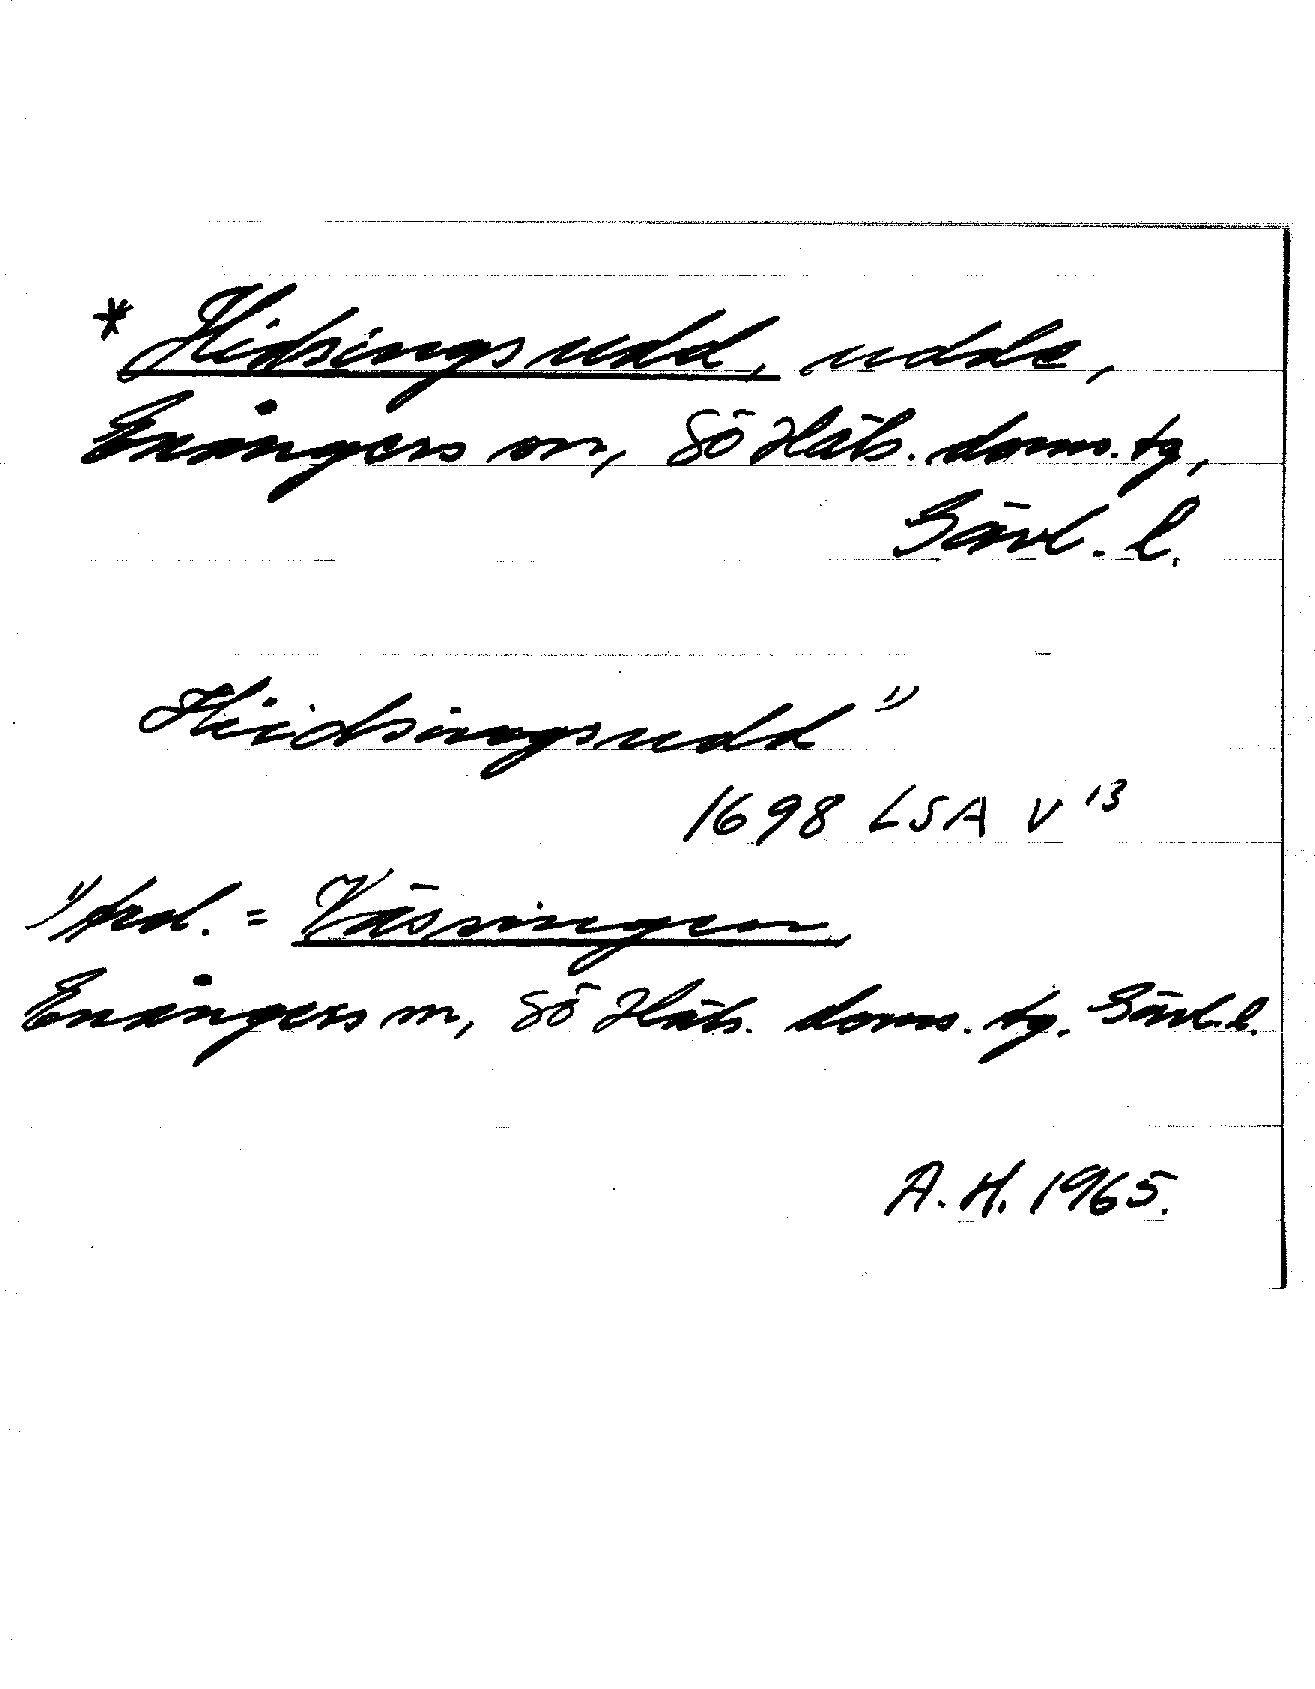 * Hidsingsudd, udde,
Enångers sn, Sö Häls. doms. tg,
Gävl. l.
Hiidsingsudd 1)
1698 LSA V 13
1) trol. = Vässingen,
Enångers sn, Sö Häls. doms. tg. Gävl. l.
A. H. 1965.